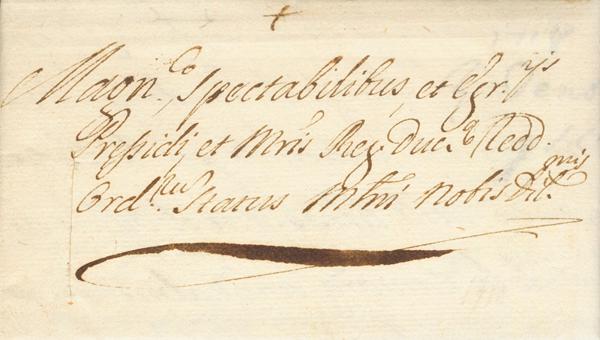 +
Magn.co, Spectabilibus, et Egr.ijs
Presidi, et Mris Reg. Duc.
Ord. Status nobis dil.mis